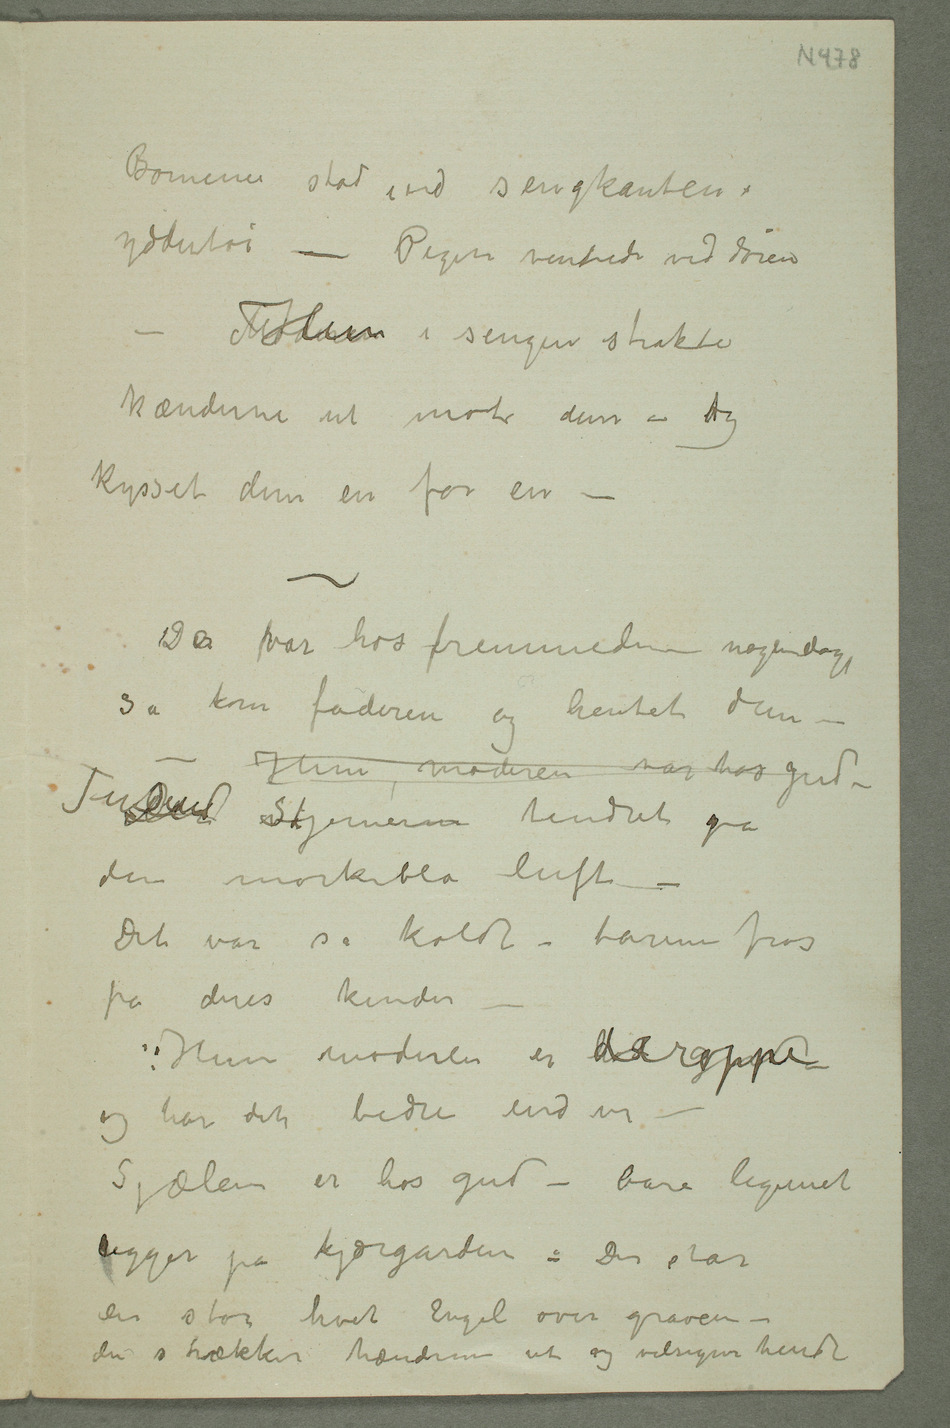 N478
Bornene stod ved sengkanten i
yddertøi — Pigen ventede ved døren
— i sengen strakte
hænderne ut mot dem – og
kysset dem en for en —
~
De var hos fremmede nogen dage
Sa kom faderen og hentet dem —
— Hun, moderen var hos gud –
Stjernerne tindret pa
den morkebla luft —
Det var sa koldt – tarene fros
pa deres kinder —
„Hun moderen er deroppe –
og har det bedre end vi —
Sjælen er hos gud – bare legemet
ligger pa kjærgarden – Der star
en stor hvit Engel over graven –
den strækker hænderne ut og velsigner hende